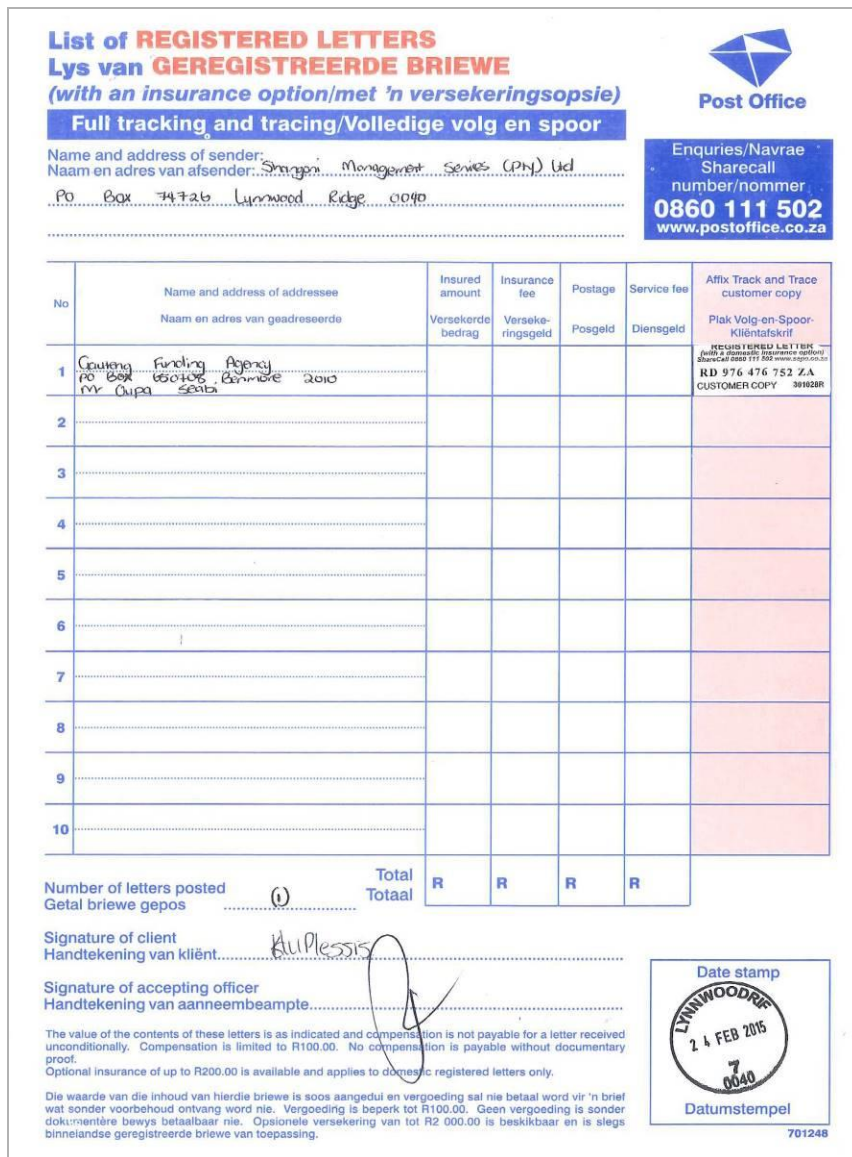 List of REGISTERED LETTERS
Lys van GEREGISTREERDE BRIEWE
(with an insurance option/met 'n versekeringsopsie)
Full tracking and tracing/Volledige volg en spoor
Post Office
Name and address of sender:
Naam en adres van afsender: Shangoni Management Services (PTY) Ltd
PO Box 74726 Lynnwood Ridge 0040
Enquries/Navrae
Sharecall
number/nommer
0860 111 502
www.postoffice.co.za
No
Name and address of addressee
Naam en adres van geadreseerde
Insured amount
Versekerde bedrag
Insurance fee
Verseke-ringsgeld
Postage
Posgeld
Service fee
Diensgeld
Affix Track and Trace customer copy
Plak Volg-en-Spoor-Kliëntafskrif
1
Gauteng Funding Agency
PO Box 650708, Benmore 2010
Mr Oupa Seabi
REGISTERED LETTER
(with a domestic insurance option)
ShareCall 0860 111 502 www.sapo.co.za
RD 976 476 752 ZA
CUSTOMER COPY 301028R
2
3
4
5
6
7
8
9
10
Number of letters posted
Getal briewe gepos (1)
Total
Totaal
R R R R
Signature of client
Handtekening van kliënt
Signature of accepting officer
Handtekening van aanneembeampte
The value of the contents of these letters is as indicated and compensation is not payable for a letter received
unconditionally. Compensation is limited to R100.00. No compensation is payable without documentary
proof.
Optional insurance of up to R200.00 is available and applies to domestic registered letters only.
Die waarde van die inhoud van hierdie briewe is soos aangedui en vergoeding sal nie betaal word vir 'n brief
wat sonder voorbehoud ontvang word nie. Vergoeding is beperk tot R100.00. Geen vergoeding is sonder
dokumentêre bewys betaalbaar nie. Opsionele versekering van tot R2 000.00 is beskikbaar en is slegs
binnelandse geregistreerde briewe van toepassing.
Date stamp
LYNNWOODRIF
24 FEB 2015
7
0040
Datumstempel
701248